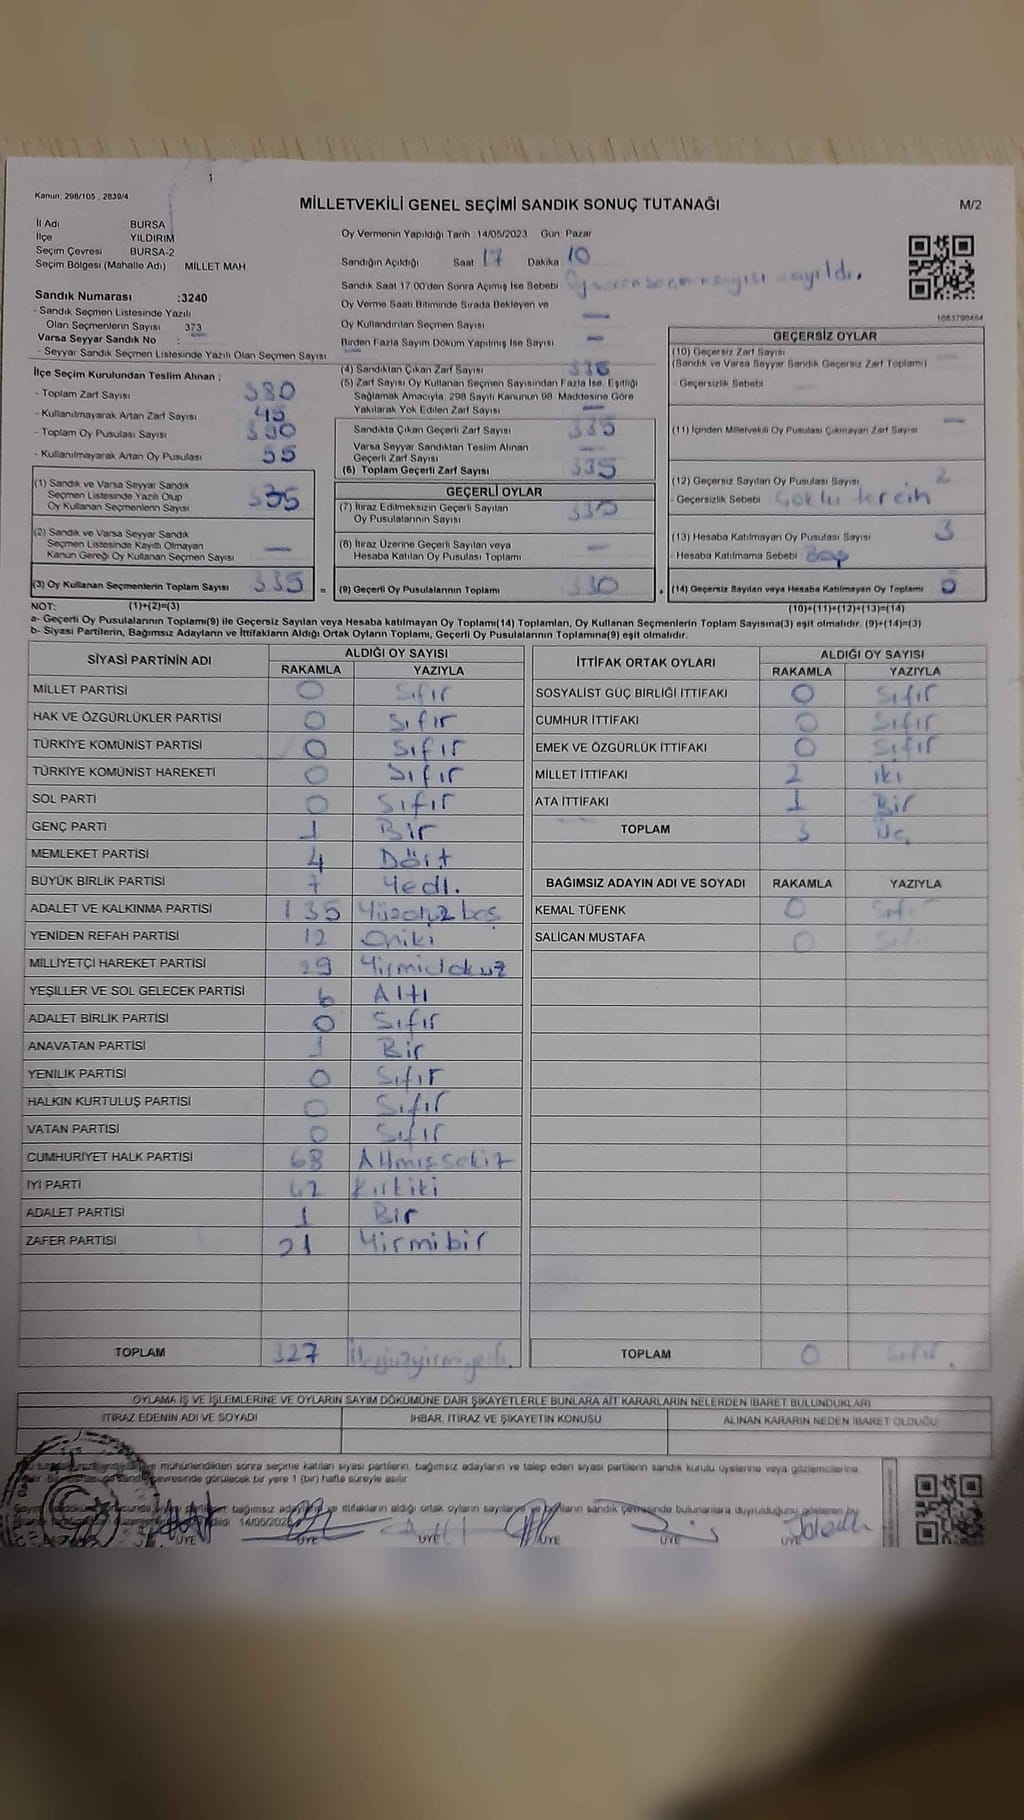 Kanun: 298/105 , 2839/4
MİLLETVEKİLİ GENEL SEÇİMİ SANDIK SONUÇ TUTANAĞI
M/2
İl Adı BURSA
İlçe YILDIRIM
Seçim Çevresi BURSA-2
Seçim Bölgesi (Mahalle Adı) MİLLET MAH.
Sandık Numarası :3240
- Sandık Seçmen Listesinde Yazılı
Olan Seçmenlerin Sayısı : 373
Varsa Seyyar Sandık No :
- Seyyar Sandık Seçmen Listesinde Yazılı Olan Seçmen Sayısı
Oy Vermenin Yapıldığı Tarih :14/05/2023 Gün: Pazar
Sandığın Açıldığı Saat 17 Dakika 10
Sandık Saat 17.00'den Sonra Açımış İse Sebebi Oy veren seçmen sayısı sayıldı.
Oy Verme Saati Bitiminde Sırada Bekleyen ve
Oy Kullandırılan Seçmen Sayısı —
Birden Fazla Sayım Döküm Yapılmış İse Sayısı —
1083790484
İlçe Seçim Kurulundan Teslim Alınan ;
- Toplam Zarf Sayısı 380
- Kullanılmayarak Artan Zarf Sayısı 45
- Toplam Oy Pusulası Sayısı
- Kullanılmayarak Artan Oy Pusulası 55
(1) Sandık ve Varsa Seyyar Sandık
Seçmen Listesinde Yazılı Olup
Oy Kullanan Seçmenlerin Sayısı 335
(2) Sandık ve Varsa Seyyar Sandık
Seçmen Listesinde Kayıtlı Olmayan
Kanun Gereği Oy Kullanan Seçmen Sayısı —
(3) Oy Kullanan Seçmenlerin Toplam Sayısı 335 =
(4) Sandıktan Çıkan Zarf Sayısı
(5) Zarf Sayısı Oy Kullanan Seçmen Sayısından Fazla İse, Eşitliği
Sağlamak Amacıyla; 298 Sayılı Kanunun 98. Maddesine Göre
Yakılarak Yok Edilen Zarf Sayısı —
Sandıkta Çıkan Geçerli Zarf Sayısı 335
Varsa Seyyar Sandıktan Teslim Alınan
Geçerli Zarf Sayısı —
(6) Toplam Geçerli Zarf Sayısı 335
GEÇERLİ OYLAR
(7) İtiraz Edilmeksizin Geçerli Sayılan
Oy Pusulalarının Sayısı 330
(8) İtiraz Üzerine Geçerli Sayılan veya
Hesaba Katılan Oy Pusulası Toplamı —
(9) Geçerli Oy Pusulalarının Toplamı 330 +
GEÇERSİZ OYLAR
(10) Geçersiz Zarf Sayısı
(Sandık ve Varsa Seyyar Sandık Geçersiz Zarf Toplamı) —
- Geçersizlik Sebebi —
(11) İçinden Milletvekili Oy Pusulası Çıkmayan Zarf Sayısı —
(12) Geçersiz Sayılan Oy Pusulası Sayısı 2
- Geçersizlik Sebebi Çoklu tercih
(13) Hesaba Katılmayan Oy Pusulası Sayısı 3
- Hesaba Katılmama Sebebi Boş
(14) Geçersiz Sayılan veya Hesaba Katılmayan Oy Toplamı 5
NOT: (1)+(2)=(3) (10)+(11)+(12)+(13)=(14)
a- Geçerli Oy Pusulalarının Toplamı(9) ile Geçersiz Sayılan veya Hesaba Katılmayan Oy Toplamı(14) Toplamları, Oy Kullanan Seçmenlerin Toplam Sayısına(3) eşit olmalıdır. (9)+(14)=(3)
b- Siyasi Partilerin, Bağımsız Adayların ve İttifakların Aldığı Ortak Oyların Toplamı, Geçerli Oy Pusulalarının Toplamına(9) eşit olmalıdır.
SİYASİ PARTİNİN ADI ALDIĞI OY SAYISI
RAKAMLA YAZIYLA
MİLLET PARTİSİ 0 Sıfır
HAK VE ÖZGÜRLÜKLER PARTİSİ 0 Sıfır
TÜRKİYE KOMÜNİST PARTİSİ 0 Sıfır
TÜRKİYE KOMÜNİST HAREKETİ 0 Sıfır
SOL PARTİ 0 Sıfır
GENÇ PARTİ 1 Bir
MEMLEKET PARTİSİ 4 Dört
BÜYÜK BİRLİK PARTİSİ 7 Yedi
ADALET VE KALKINMA PARTİSİ 135 Yüzotuzbeş
YENİDEN REFAH PARTİSİ 12 Oniki
MİLLİYETÇİ HAREKET PARTİSİ 29 Yirmidokuz
YEŞİLLER VE SOL GELECEK PARTİSİ 6 Altı
ADALET BİRLİK PARTİSİ 0 Sıfır
ANAVATAN PARTİSİ 1 Bir
YENİLİK PARTİSİ 0 Sıfır
HALKIN KURTULUŞ PARTİSİ 0 Sıfır
VATAN PARTİSİ 0 Sıfır
CUMHURİYET HALK PARTİSİ 68 Altmışsekiz
İYİ PARTİ 42 Kırkiki
ADALET PARTİSİ 1 Bir
ZAFER PARTİSİ 21 Yirmibir
TOPLAM 327 Üçyüzyirmiyedi.
İTTİFAK ORTAK OYLARI ALDIĞI OY SAYISI
RAKAMLA YAZIYLA
SOSYALİST GÜÇ BİRLİĞİ İTTİFAKI 0 Sıfır
CUMHUR İTTİFAKI 0 Sıfır
EMEK VE ÖZGÜRLÜK İTTİFAKI 0 Sıfır
MİLLET İTTİFAKI 2 iki
ATA İTTİFAKI 1 Bir
TOPLAM 3 Üç
BAĞIMSIZ ADAYIN ADI VE SOYADI RAKAMLA YAZIYLA
KEMAL TÜFENK 0 Sıfır
SALİCAN MUSTAFA 0 Sıfır
TOPLAM 0 Sıfır.
OYLAMA İŞ VE İŞLEMLERİNE VE OYLARIN SAYIM DÖKÜMÜNE DAİR ŞİKAYETLERLE BUNLARA AİT KARARLARIN NELERDEN İBARET BULUNDUKLARI
İTİRAZ EDENİN ADI VE SOYADI İHBAR, İTİRAZ VE ŞİKAYETİN KONUSU ALINAN KARARIN NEDEN İBARET OLDUĞU
mühürlendikten sonra seçime katılan siyasi partilerin, bağımsız adayların ve talep eden siyasi partilerin sandık kurulu üyelerine veya gözlemcilerine
çevresinde görülecek bir yere 1 (bir) hafta süreyle asılır
bağımsız adaylar ve ittifakların aldığı ortak oyların sayılarını sandık çevresinde bulunanlara duyrulduğunu gösteren bu
14/05/2023
ÜYE ÜYE ÜYE ÜYE ÜYE ÜYE